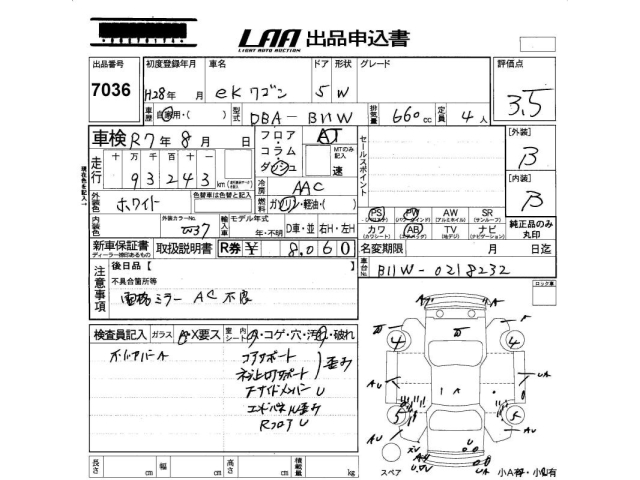 LAA 出品申込書
LIGHT AUTO AUCTION
出品番号 初度登録年月 車名 ドア 形状 グレード 評価点
7036 H28年 月 eKワゴン 5 W 3.5
車歴 自家用・( ) 型式 DBA-B11W 排気量 660cc 定員 4人
車検 R7年 8月 日 フロア・コラム・ダッシュ AT セールスポイント [外装] B
MTのみ記入 速
走行 十 万 千 百 十 一
93243 km
冷房 AAC [内装] B
現在色を記入
外装色 ホワイト 色替車は色替と記入 燃料 ガソリン・軽油・( )
PS PW AW SR
(パワステ) (パワーウインド) (アルミホイル) (サンルーフ)
内装色 外装カラーNo. W37 輸入車 モデル年式 年・不明 D車・並 右H・左H
カワ AB TV ナビ 純正品のみ丸印
(カワシート) (エアバッグ) (地デジ) (ナビゲーション)
新車保証書 取扱説明書 R券 ¥ 8,060 名変期限 月 日迄
ディーラー捺印あるもの
車台No. B11W-0218232
注意事項 後日品【 】 ロック車
不具合箇所等
電格ミラー AC不良
検査員記入 ガラス X要ス 室内シート コゲ・穴・汚れ・破れ
コアサポート
歪み
エンドパネル歪み
RフロアU
長さ cm 幅 cm 高さ cm 積載量 kg
スペア 小A有・小U有